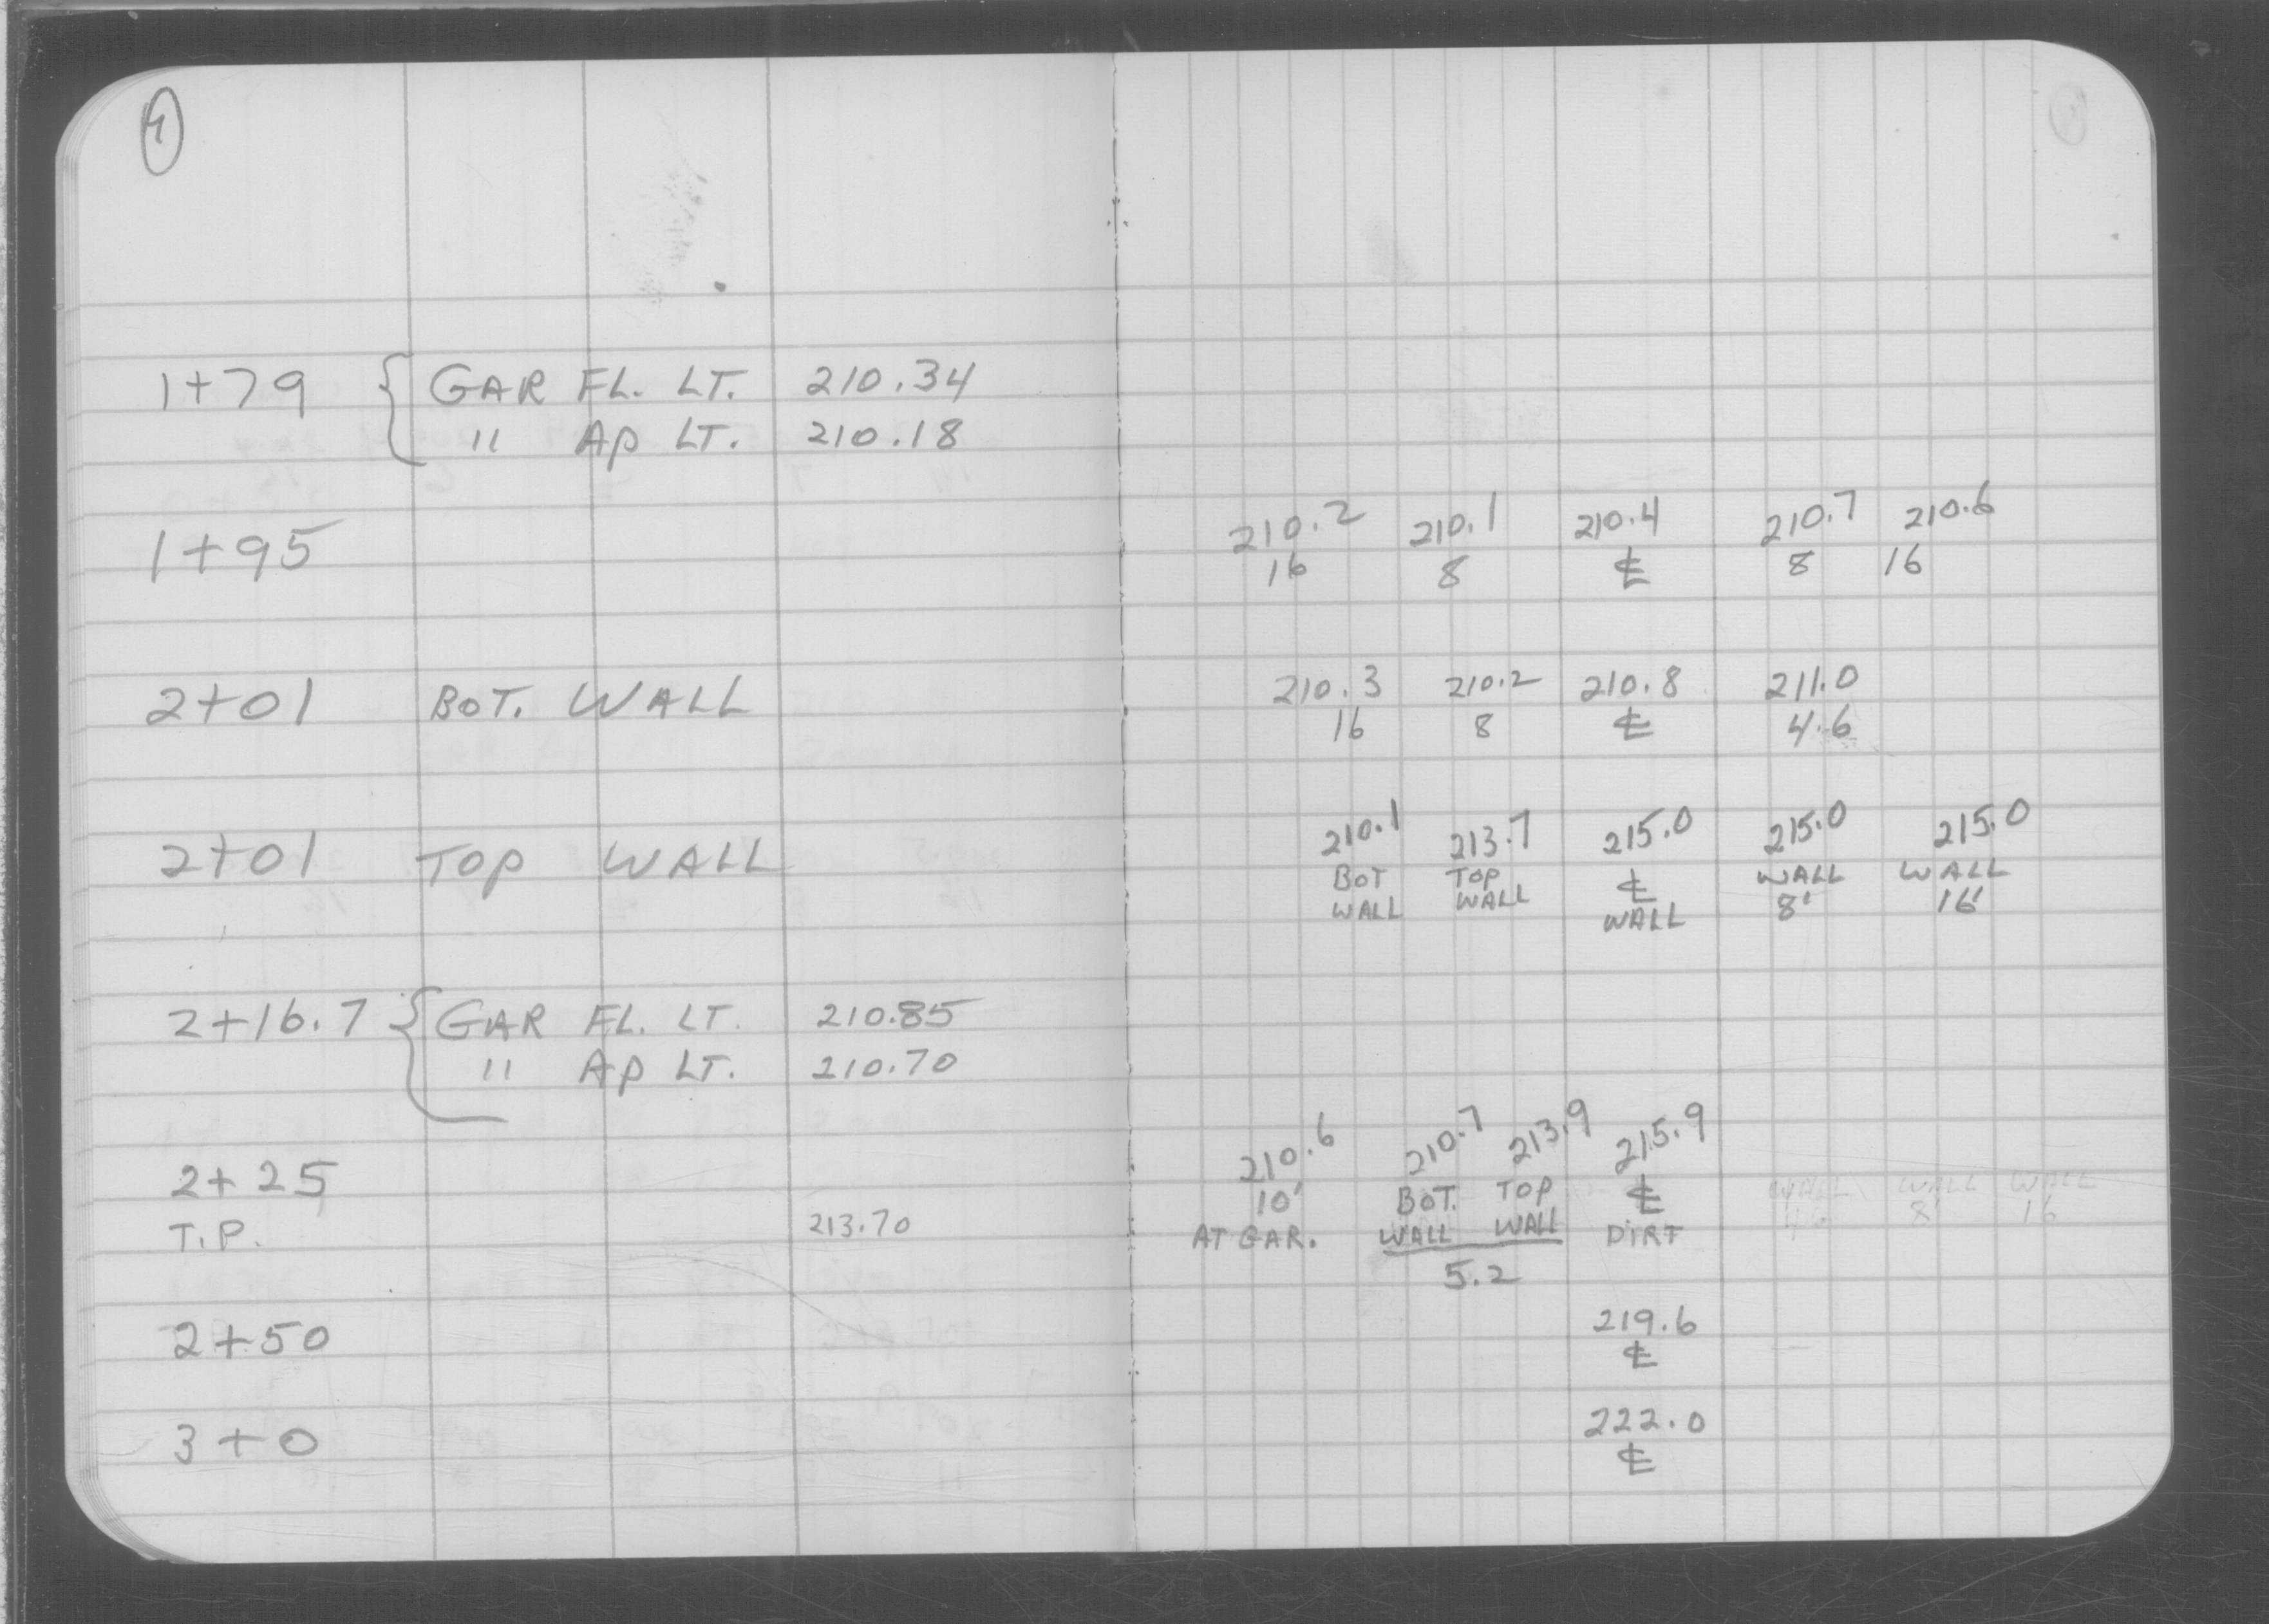 4
1+79 { GAR FL. LT. 210.34
" AP LT. 210.18
1+95 210.2 210.1 210.4 210.7 210.6
16 8 ℄ 8 16
2+01 BOT. WALL 210.3 210.2 210.8 211.0
16 8 ℄ 4.6
2+01 TOP WALL 210.1 213.7 215.0 215.0 215.0
BOT TOP ℄ WALL WALL
WALL WALL WALL 8' 16'
2+16.7 { GAR FL. LT. 210.85
" AP LT. 210.70
2+25 210.6 210.7 213.9 215.9
10' BOT. TOP ℄ WALL WALL WALL
T.P. 213.70 AT GAR. WALL WALL DIRT 8' 16
5.2
2+50 219.6
℄
3+0 222.0
℄